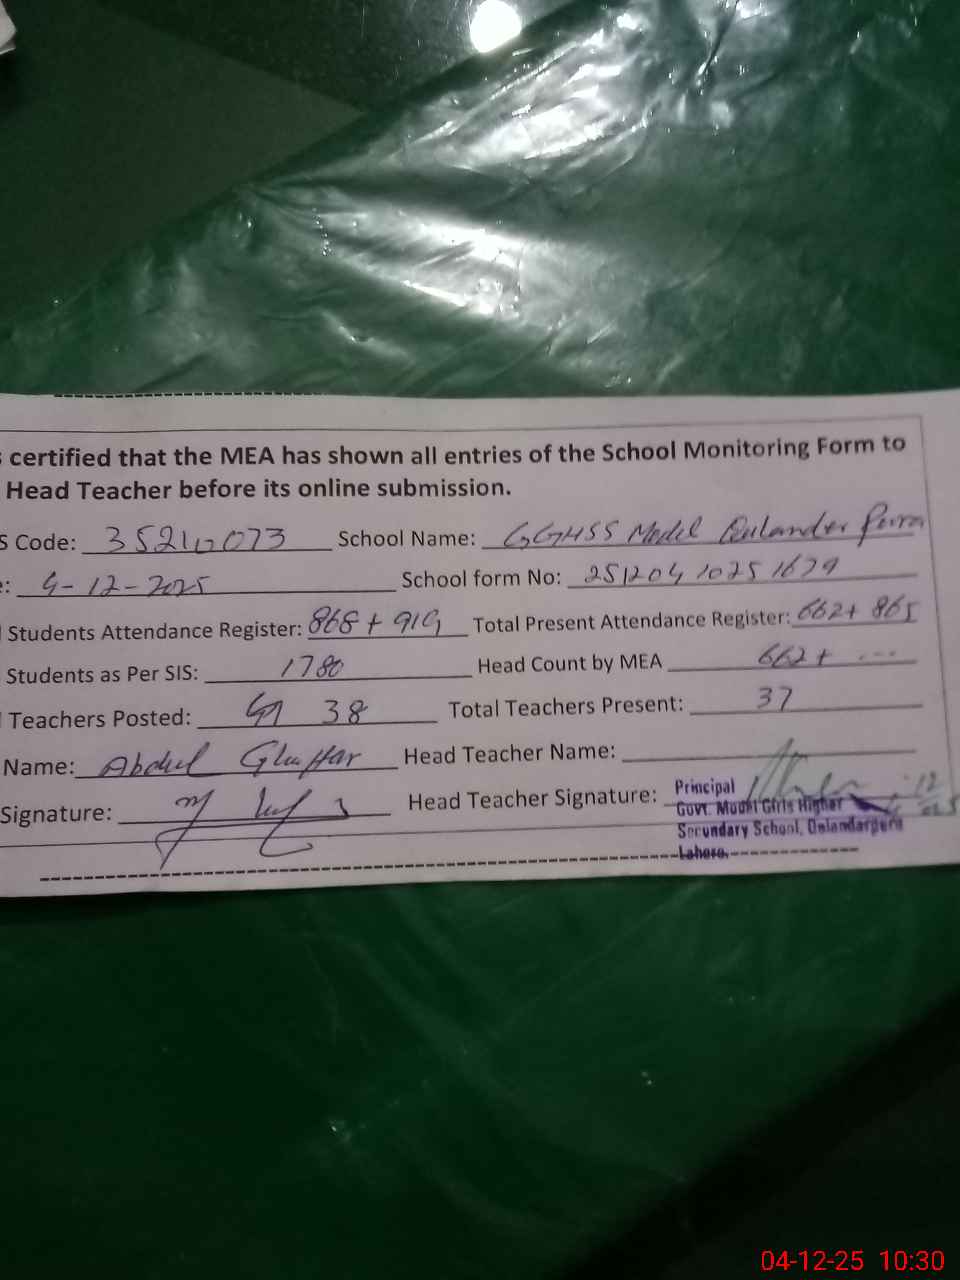 certified that the MEA has shown all entries of the School Monitoring Form to
Head Teacher before its online submission.
S Code: 35210073 School Name: GGHSS Model
: 4-12-2025 School form No: 25120410251679
Students Attendance Register: 868 + 919 Total Present Attendance Register: 662 + 865
Students as Per SIS: 1780 Head Count by MEA 662 + ---
Teachers Posted: 38 Total Teachers Present: 37
Name: Abdul Ghaffar Head Teacher Name:
Signature: Head Teacher Signature:
Principal
Govt. Model Girls Higher
Secondary School,
Lahore.
04-12-25 10:30